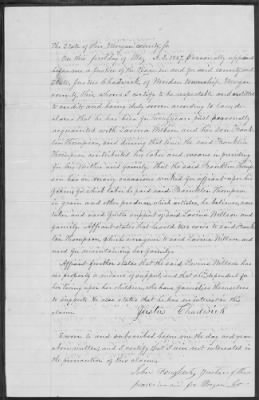 The State of Ohio, Morgan county, ss
On this first day of May A.D. 1867 Personally appeared
before me a Justice of the Peace in and for said county and
State, Justin Chadwick of township, Morgan
county Ohio, whom I certify to be respectable and entitled
to credit, and being duly sworn according to law, de-
clares that he has been for years past personally
acquainted with Lovina Wilson and her son Frank-
lin Thompson, and during that time the said Franklin
Thompson contributed his labor and means in providing
for his Mother and family. that the said Franklin Thomp-
son has on many occasions worked for affiant upon his
farm, for which labor he paid said Franklin Thompson
in grain and other produce, which articles, he believes, were
taken and used for the support of said Lovina Wilson and
family. Affiant states that he sold two cows to said Frank-
lin Thompson, which were given to said Lovina Wilson and
used for maintaining her family.
Affiant further states that the said Lovina Wilson has
no property or means of support, and that she is dependent for
her living upon her children, who have families themselves
to support. He also states that he has no interest in this
claim.
Justin Chadwick
Sworn to and subscribed before me the day and year
above written, and I certify that I am not interested in
the prosecution of this claim.
John Justice of the
peace in and for Morgan Co